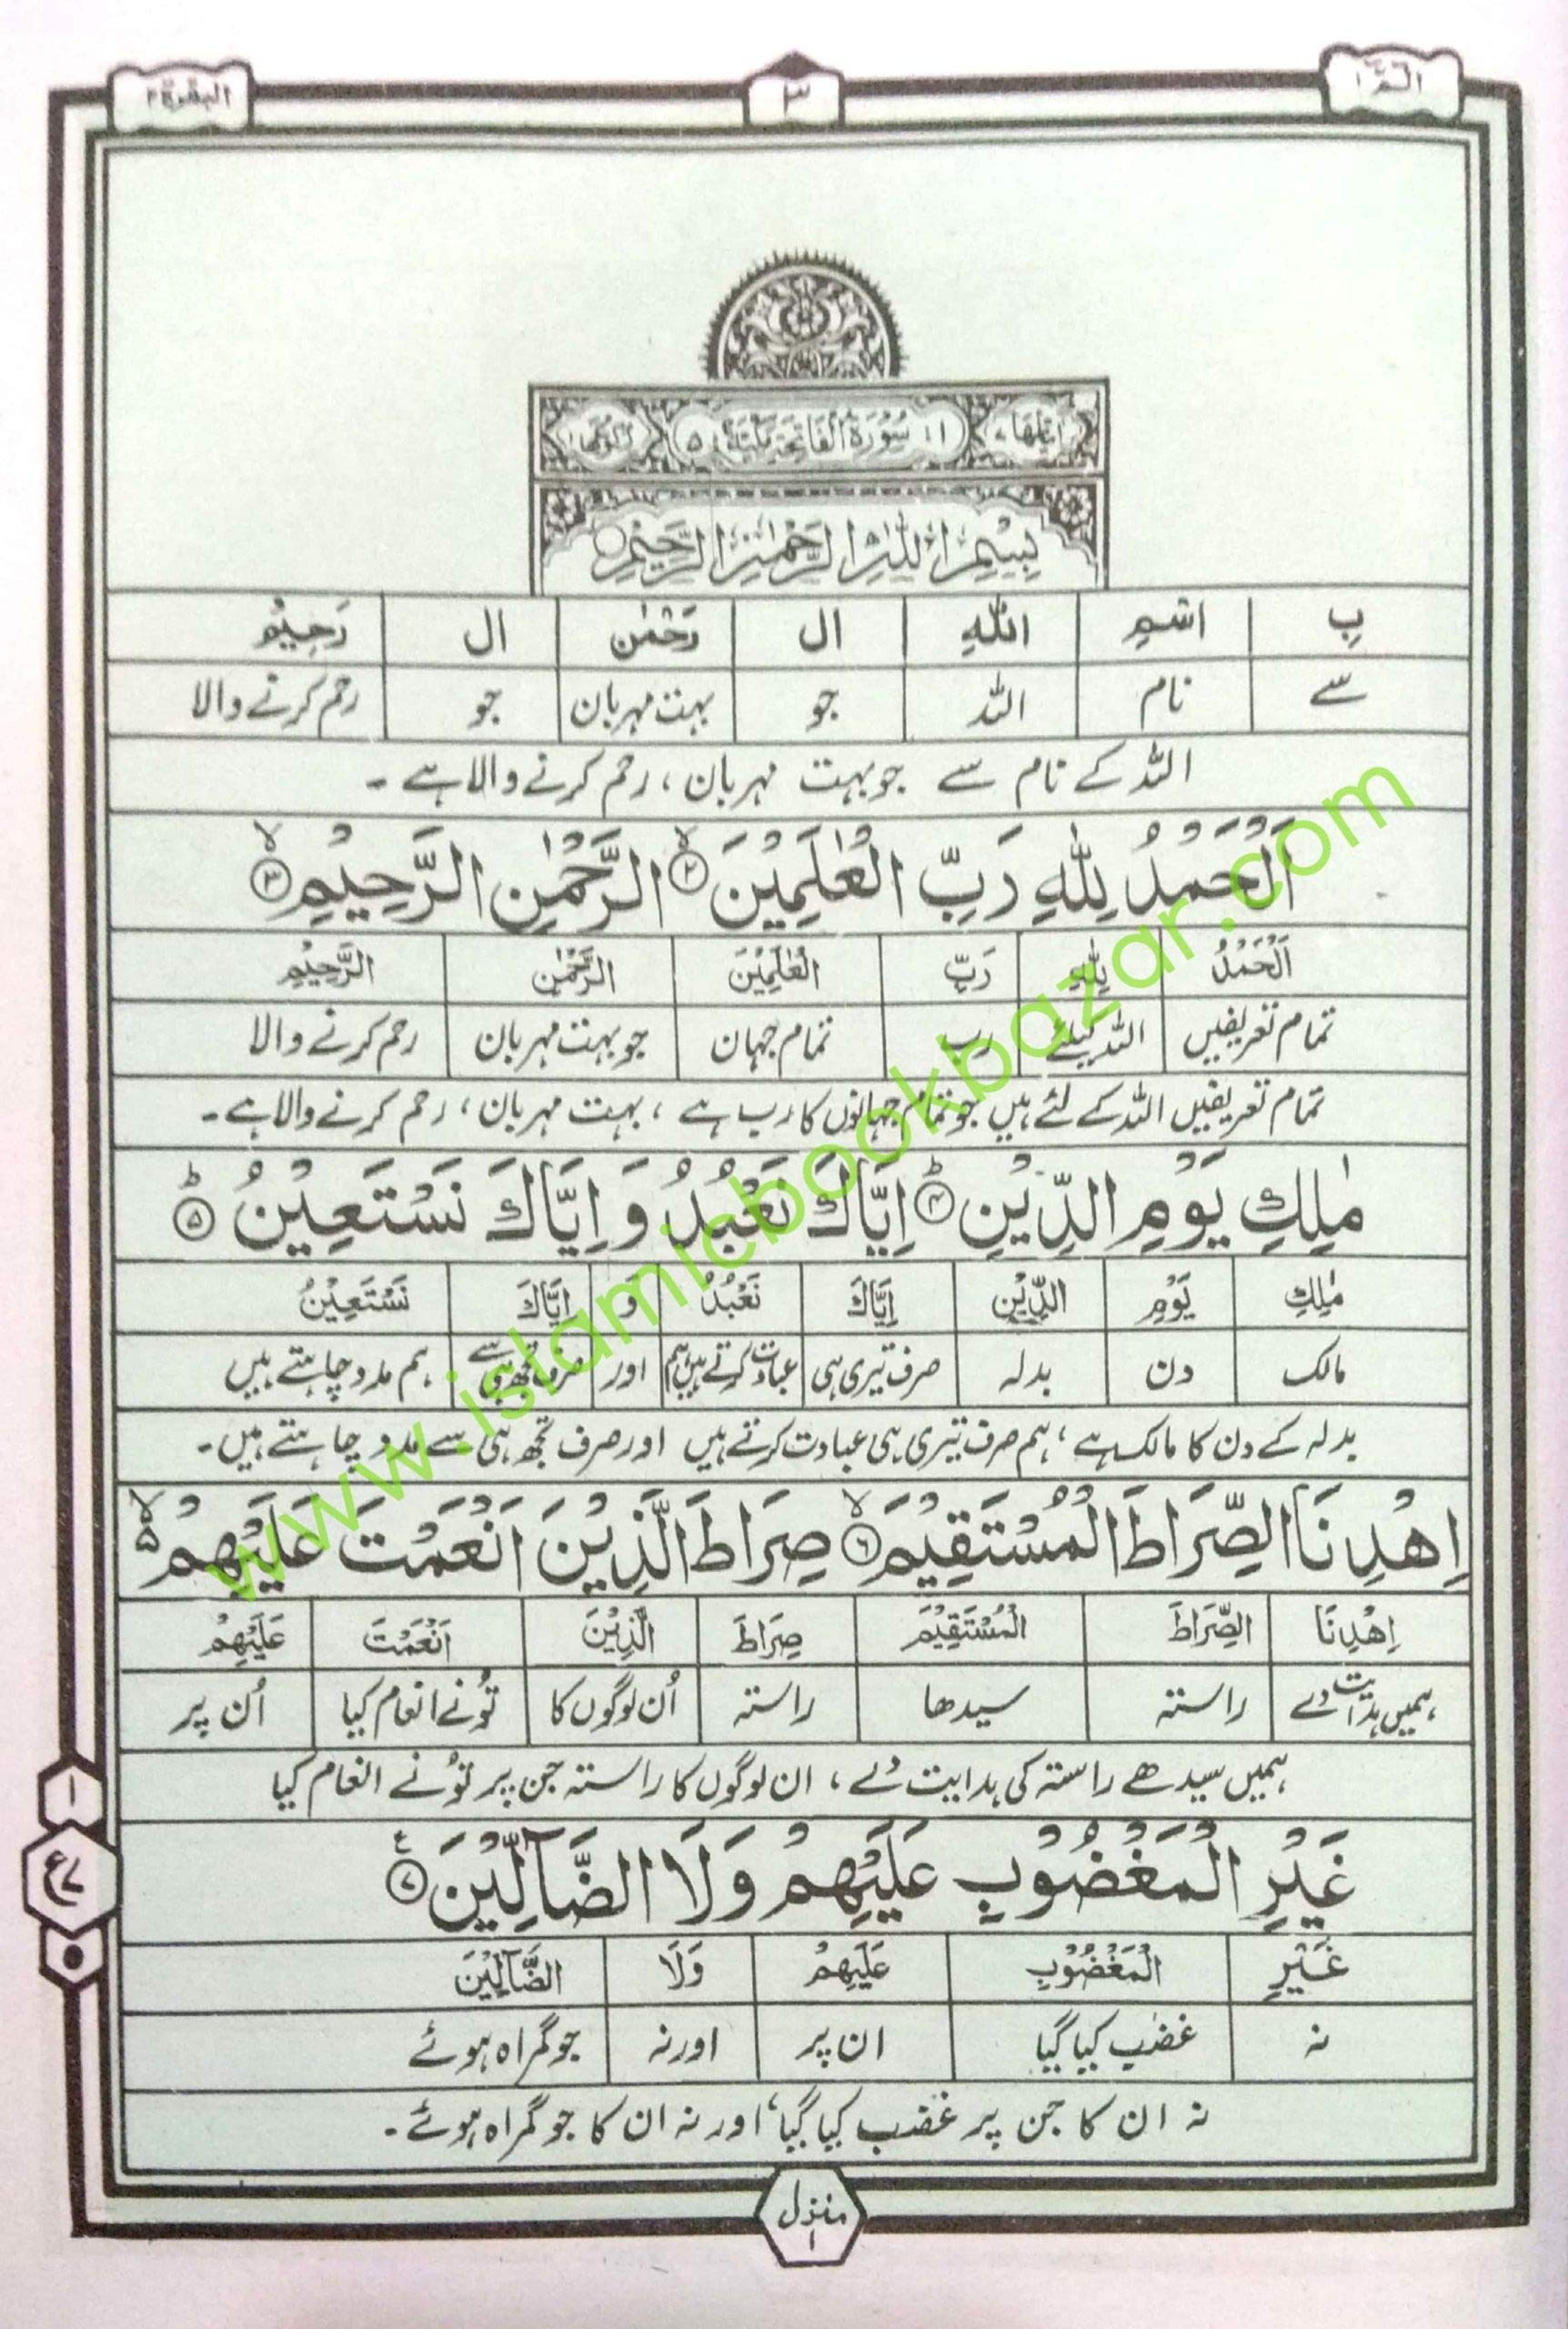 الٓمّٓ ١
٣
البقرة ٢
اٰیاتھا ٧
١: سُوْرَةُ الْفَاتِحَةِ مَكِّیَّةٌ ٥
رکوعھا ١
بِسْمِ اللّٰهِ الرَّحْمٰنِ الرَّحِیْمِ
بِ اسْمِ اللّٰهِ ال رَحْمٰن ال رَحِیْمِ
سے نام اللہ جو بہت مہربان جو رحم کرنے والا
اللہ کے نام سے جو بہت مہربان، رحم کرنے والا ہے۔
اَلْحَمْدُ لِلّٰهِ رَبِّ الْعٰلَمِیْنَ ۙ﴿٢﴾ الرَّحْمٰنِ الرَّحِیْمِ ۙ﴿٣﴾
اَلْحَمْدُ لِلّٰهِ رَبِّ الْعٰلَمِیْنَ الرَّحْمٰنِ الرَّحِیْمِ
تمام تعریفیں اللہ کیلئے رب تمام جہان جو بہت مہربان رحم کرنے والا
تمام تعریفیں اللہ کے لئے ہیں جو تمام جہانوں کا رب ہے، بہت مہربان، رحم کرنے والا ہے۔
مٰلِكِ یَوْمِ الدِّیْنِ ؕ﴿٤﴾ اِیَّاكَ نَعْبُدُ وَ اِیَّاكَ نَسْتَعِیْنُ ؕ﴿٥﴾
مٰلِكِ یَوْمِ الدِّیْنِ اِیَّاكَ نَعْبُدُ وَ اِیَّاكَ نَسْتَعِیْنُ
مالک دن بدلہ صرف تیری ہی عبادت کرتے ہیں ہم اور صرف تجھ ہی سے ہم مدد چاہتے ہیں
بدلہ کے دن کا مالک ہے، ہم صرف تیری ہی عبادت کرتے ہیں اور صرف تجھ ہی سے مدد چاہتے ہیں۔
اِهْدِنَا الصِّرَاطَ الْمُسْتَقِیْمَ ۙ﴿٦﴾ صِرَاطَ الَّذِیْنَ اَنْعَمْتَ عَلَیْهِمْ ۙ۵
اِهْدِنَا الصِّرَاطَ الْمُسْتَقِیْمَ صِرَاطَ الَّذِیْنَ اَنْعَمْتَ عَلَیْهِمْ
ہمیں ہدایت دے راستہ سیدھا راستہ اُن لوگوں کا تُو نے انعام کیا اُن پر
ہمیں سیدھے راستہ کی ہدایت دے، ان لوگوں کا راستہ جن پر تُو نے انعام کیا
غَیْرِ الْمَغْضُوْبِ عَلَیْهِمْ وَلَا الضَّآلِّیْنَ ﴿٧﴾ ع
١
ع٧
غَیْرِ الْمَغْضُوْبِ عَلَیْهِمْ وَلَا الضَّآلِّیْنَ
نہ غضب کیا گیا ان پر اور نہ جو گمراہ ہوئے
نہ ان کا جن پر غضب کیا گیا، اور نہ ان کا جو گمراہ ہوئے۔
منزل ١
www.islamicbookbazar.com